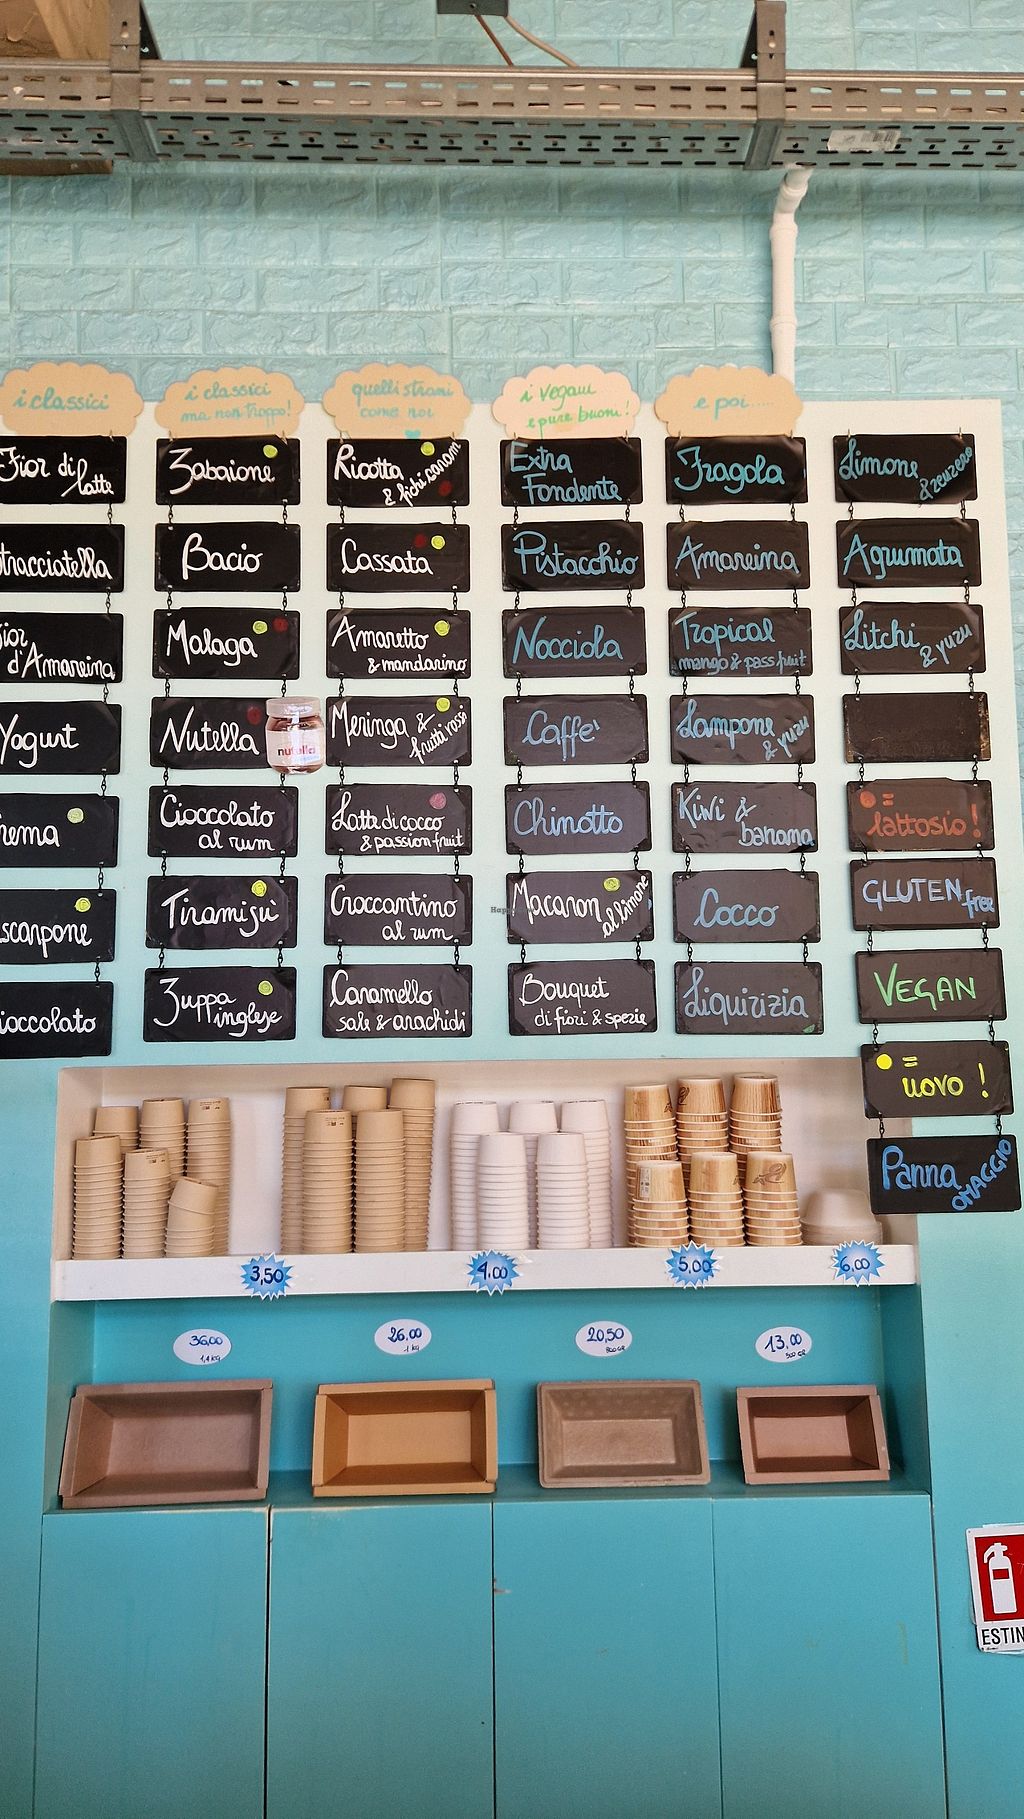 i classici
Fior di
latte
tracciatella
Fior
d'Amarena
Yogurt
rema
scarpone
ioccolato
i classici
ma non troppo!
Zabaione
Bacio
Malaga
Nutella
nutella
Cioccolato
al rum
Tiramisù
Zuppa
inglese
quelli strani
come noi
Ricotta
& fichi caram
Cassata
Amaretto
& mandarino
Meringa &
frutti rossi
Latte di cocco
& passion fruit
Croccantino
al rum
Caramello
sale & arachidi
i vegani
e pure buoni!
Extra
Fondente
Pistacchio
Nocciola
Caffe'
Chinotto
Macaron
al limone
Bouquet
di fiori & spezie
e poi.....
Fragola
Amarena
Tropical
mango & pass fruit
Lampone
& yuzu
Kiwi &
banana
Cocco
Liquirizia
Limone
& zenzero
Agrumata
Litchi
& yuzu
=
lattosio!
GLUTEN
free
VEGAN
=
uovo!
Panna
OMAGGIO
3,50
4,00
5,00
6,00
36,00
1,4 KG
26,00
1 KG
20,50
800 GR
13,00
500 GR
ESTIN